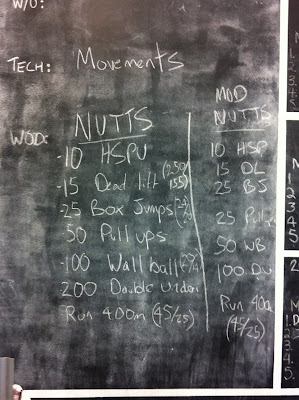 W/O:
TECH: Movements
WOD:
NUTTS
-10 HSPU
-15 Dead lift (250/155)
-25 Box Jumps
50 Pull ups
-100 Wall ball
200 Double Under
Run 400m (45/25)
MOD
NUTTS
10 HSP
15 DL
25 BJ
25 Pullups
50 WB
100 DU
Run 400
(45/25)